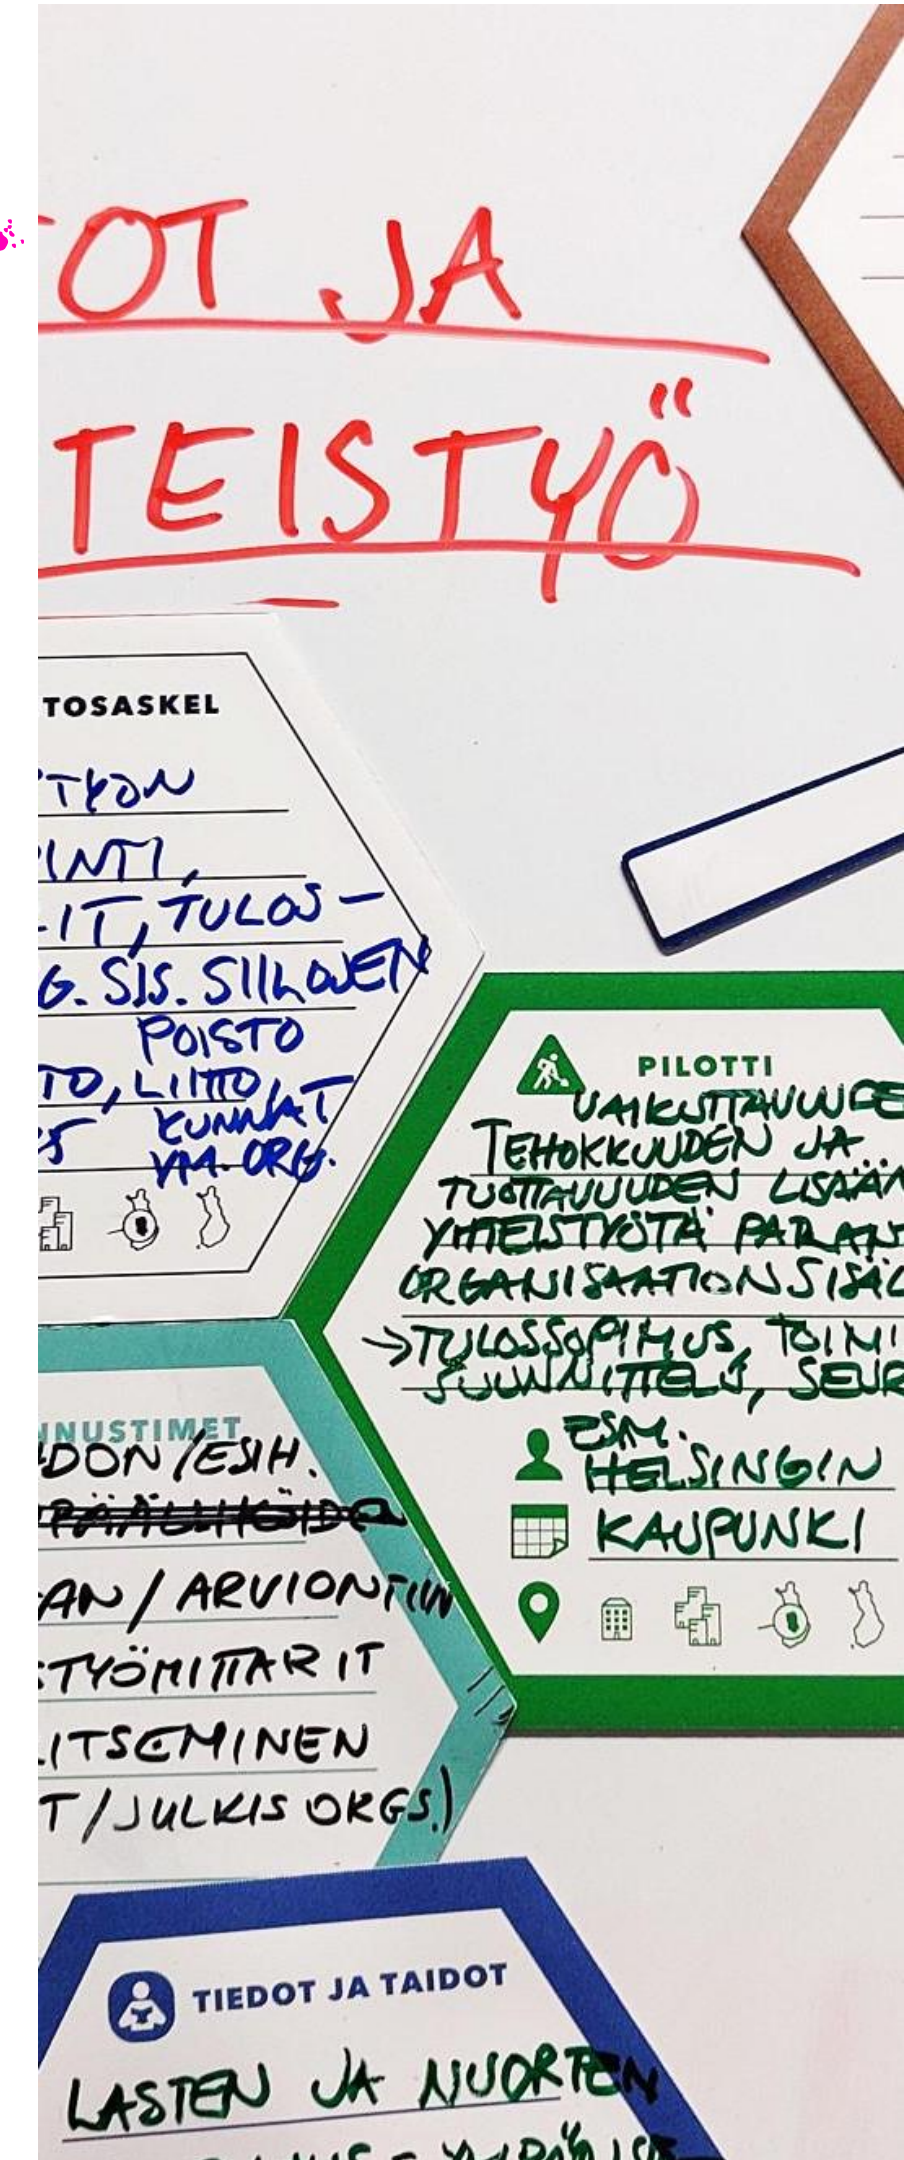 OT JA
TEISTYÖ
TOSASKEL
TYÖN
INTI,
IT, TULOS-
G. SIS. SIILOJEN
POISTO
TO, LIITTO,
KUNNAT
YM. ORG.
PILOTTI
VAIKUTTAVUUDE
TEHOKKUUDEN JA
TUOTTAVUUDEN LISÄÄM
YHTEISTYÖTÄ PARAN
ORGANISAATION SISÄL
→TULOSSOPIMUS, TOIMI
SUUNNITTELU, SEUR
ESIM.
HELSINGIN
KAUPUNKI
NNUSTIMET
DON/ESIH.
AN/ARVIOINTIIN
TYÖMITTARIT
ITSEMINEN
T/JULKIS ORGS.)
TIEDOT JA TAIDOT
LASTEN JA NUORTEN